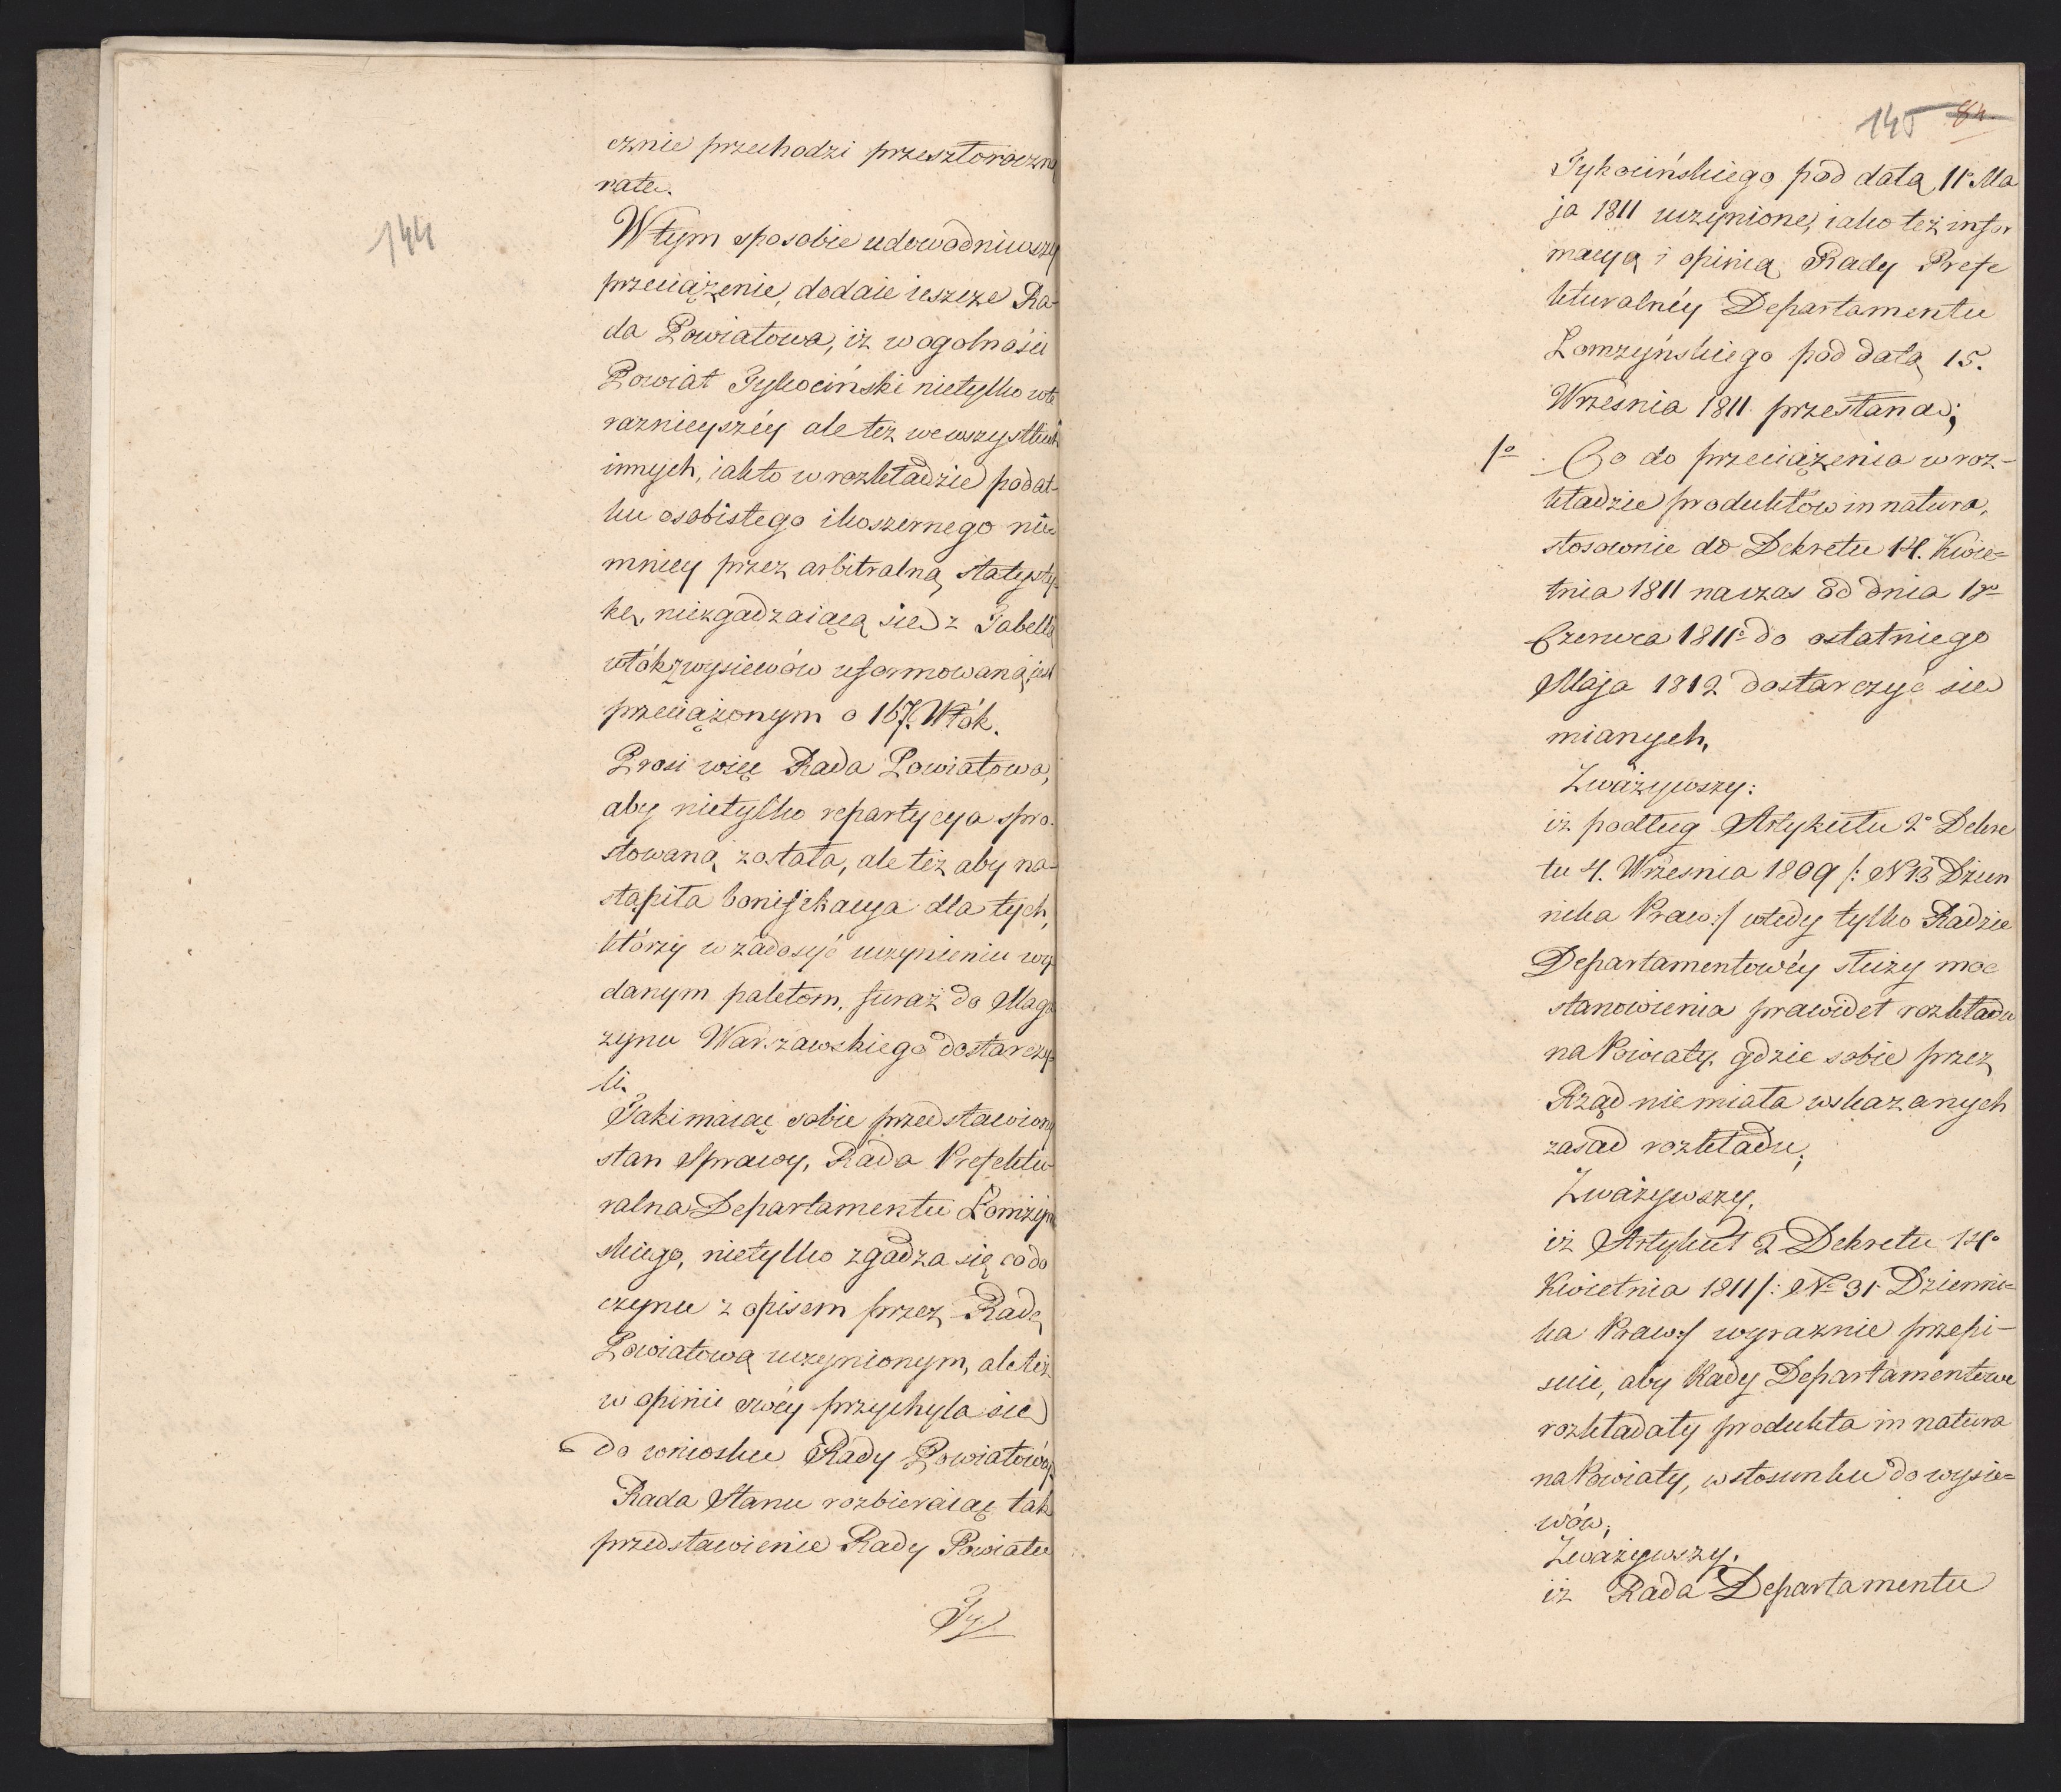 144
cznie przechodzi przeszłoroczną
ratę.
W tym sposobie udowodniwszy
przeciążenie, dodaie ieszcze Ra-
da Powiatowa, iż w ogolności
Powiat Tykociński nietylko w te
raznieyszéy ale też we wszystkich
innych, iakto w rozkładzie podat-
ku osobistego i koszernego nie
mniey przez arbitralną statysty-
kę, niezgadzaiącą się z Tabellą
włók wysiewów uformowaną, iest
przeciążonym o 167. Włók.
Prosi więc Rada Powiatowa,
aby nietylko repartycya spro-
stowaną została, ale też aby na-
stąpiła bonifikacya dla tych,
którzy w zadosyć uczynieniu wy-
danym paletom, furaż do Maga
zynu Warszawskiego dostarczy-
li.
Taki maiąc sobie przedstawiony
stan Sprawy, Rada Prefektu-
ralna Departamentu Łomżyń
skiego, nietylko zgadza się co do
czynu z opisem przez Radę
Powiatową uczynionym, ale też
w opinii swéy przychyla się
do wniosku Rady Powiatowéy.
Rada Stanu rozbieraiąc tak
przedstawienie Rady Powiatu
Ty
145 84.
Tykocińskiego pod datą 11° Ma
ja 1811 uczynione, iako też infor
macyą i opinią Rady Prefe
kturalnéy Departamentu
Łomzyńskiego pod datą 15.
Września 1811 przesłaną;
1° Co do przeciążenia w roz-
kładzie produktów in natura,
stosownie do Dekretu 14. Kwie-
tnia 1811 na czas od dnia 1go
Czerwca 1811° do ostatniego
Maja 1812 dostarczyć się
mianych,
Zważywszy:
iż podług Artykułu 2° Dekre
tu 4. Września 1809 /: N 13 Dzien
nika Praw:/ wtedy tylko Radzie
Departamentowéy służy moc
stanowienia prawideł rozkładu
na Powiaty, gdzie sobie przez
Rząd nie miała wskazanych
zasad rozkładu;
Zważywszy,
iż Artykuł 2 Dekretu 14°
Kwietnia 1811 /: N° 31 Dzienni-
ka Praw:/ wyraznie przepi-
suie, aby Rady Departamentowe
rozkładały produkta in natura
na Powiaty, w stosunku do wysie-
wów;
Zważywszy,
iż Rada Departamentu